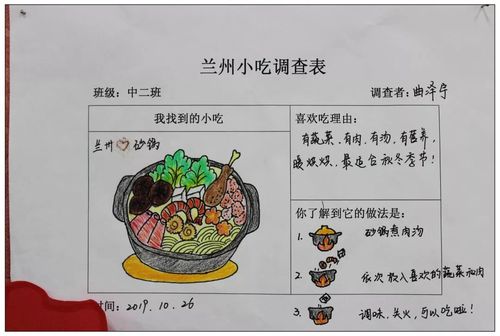 兰州小吃调查表
班级：中二班
调查者：曲泽宁
我找到的小吃
兰州 砂锅
喜欢吃理由：
有蔬菜、有肉、有汤、有营养，
暖烘烘，最适合秋冬季节！
你了解到它的做法是：
1. 砂锅煮肉汤
2. 依次放入喜欢的蔬菜和肉
3. 调味、关火，可以吃啦！
时间：2019.10.26